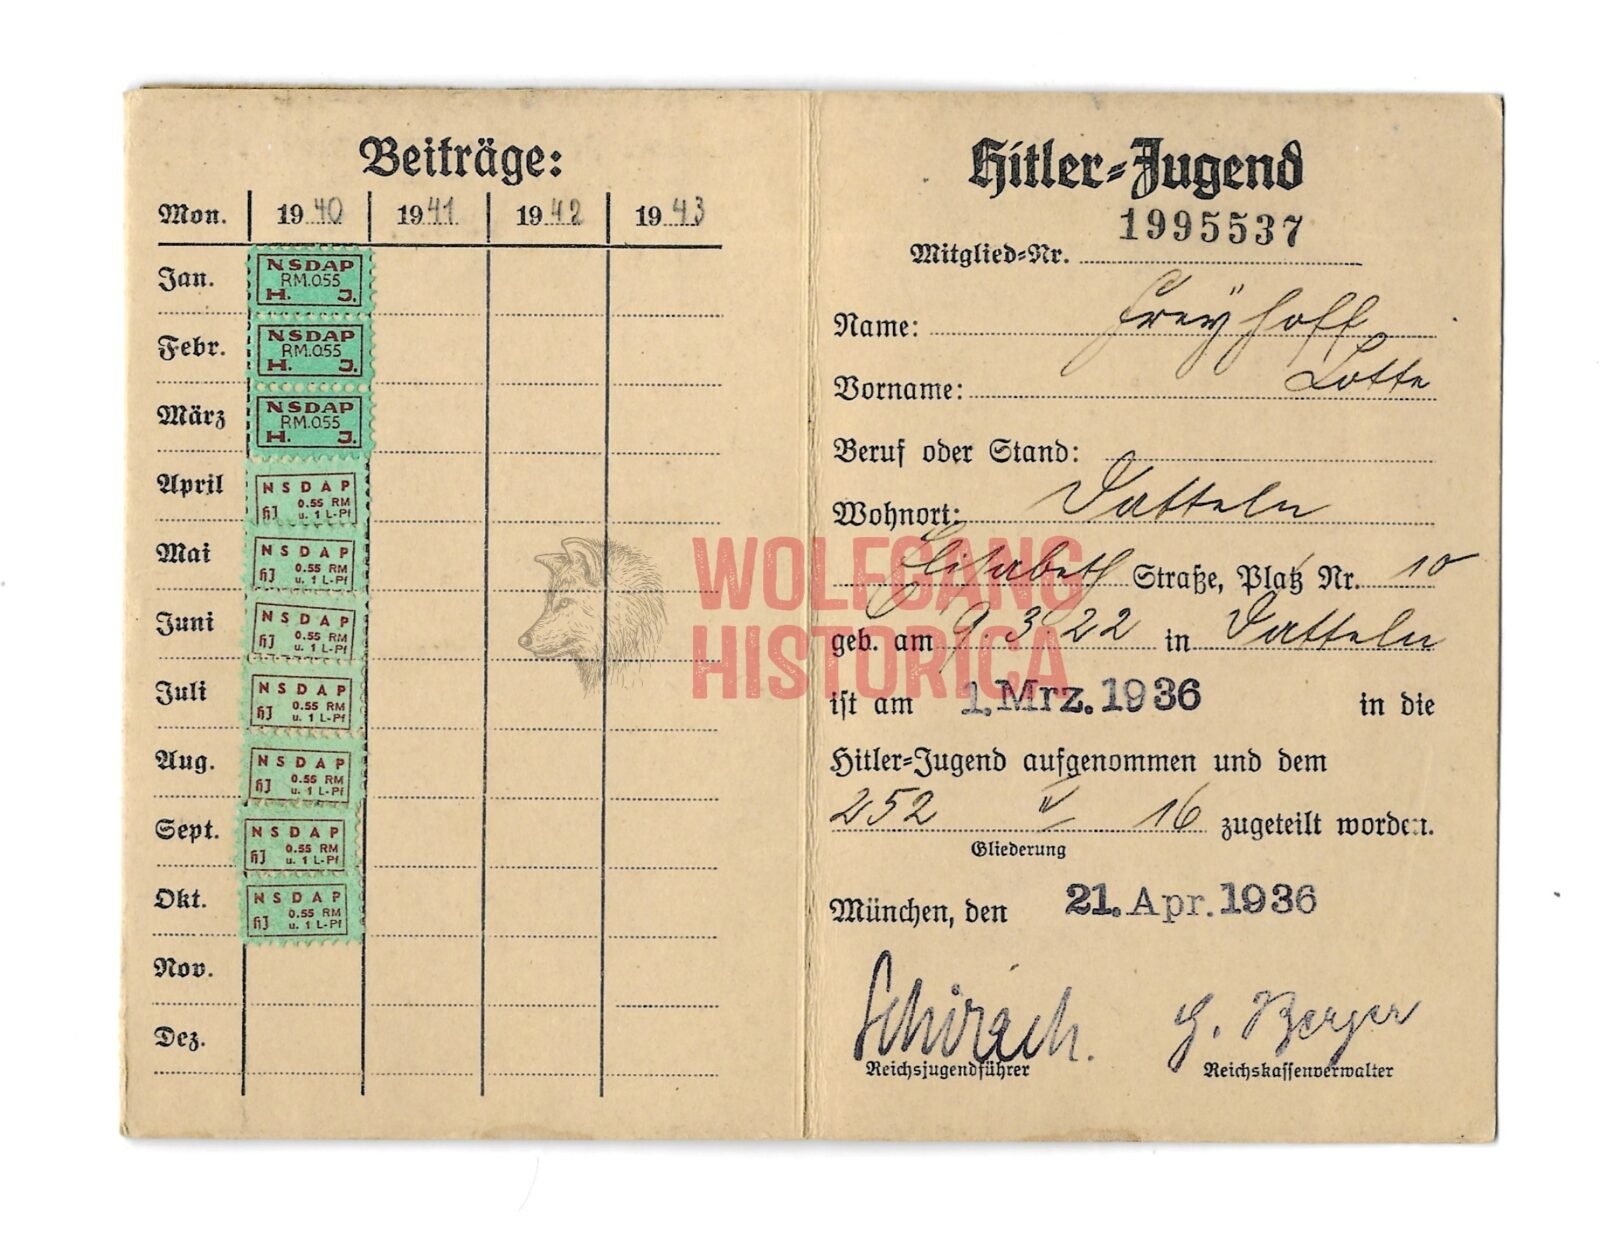 Beiträge:
Mon. 1940 1941 1942 1943
Jan. NSDAP RM.0.55 H. J.
Febr. NSDAP RM.0.55 H. J.
März NSDAP RM.0.55 H. J.
April NSDAP HJ 0.55 RM u. 1 L-Pf
Mai NSDAP HJ 0.55 RM u. 1 L-Pf
Juni NSDAP HJ 0.55 RM u. 1 L-Pf
Juli NSDAP HJ 0.55 RM u. 1 L-Pf
Aug. NSDAP HJ 0.55 RM u. 1 L-Pf
Sept. NSDAP HJ 0.55 RM u. 1 L-Pf
Okt. NSDAP HJ 0.55 RM u. 1 L-Pf
Nov.
Dez.
Hitler-Jugend
Mitglied-Nr. 1995537
Name: Freÿhoff
Vorname: Lotte
Beruf oder Stand:
Wohnort: Datteln
Elisabeth Straße, Platz Nr. 10
geb. am 9.3.22 in Datteln
ist am 1. Mrz. 1936 in die
Hitler-Jugend aufgenommen und dem
252 IV 16 zugeteilt worden.
Gliederung
München, den 21. Apr. 1936
Schirach. G. Berger
Reichsjugendführer Reichskassenverwalter
WOLFGANG
HISTORICA